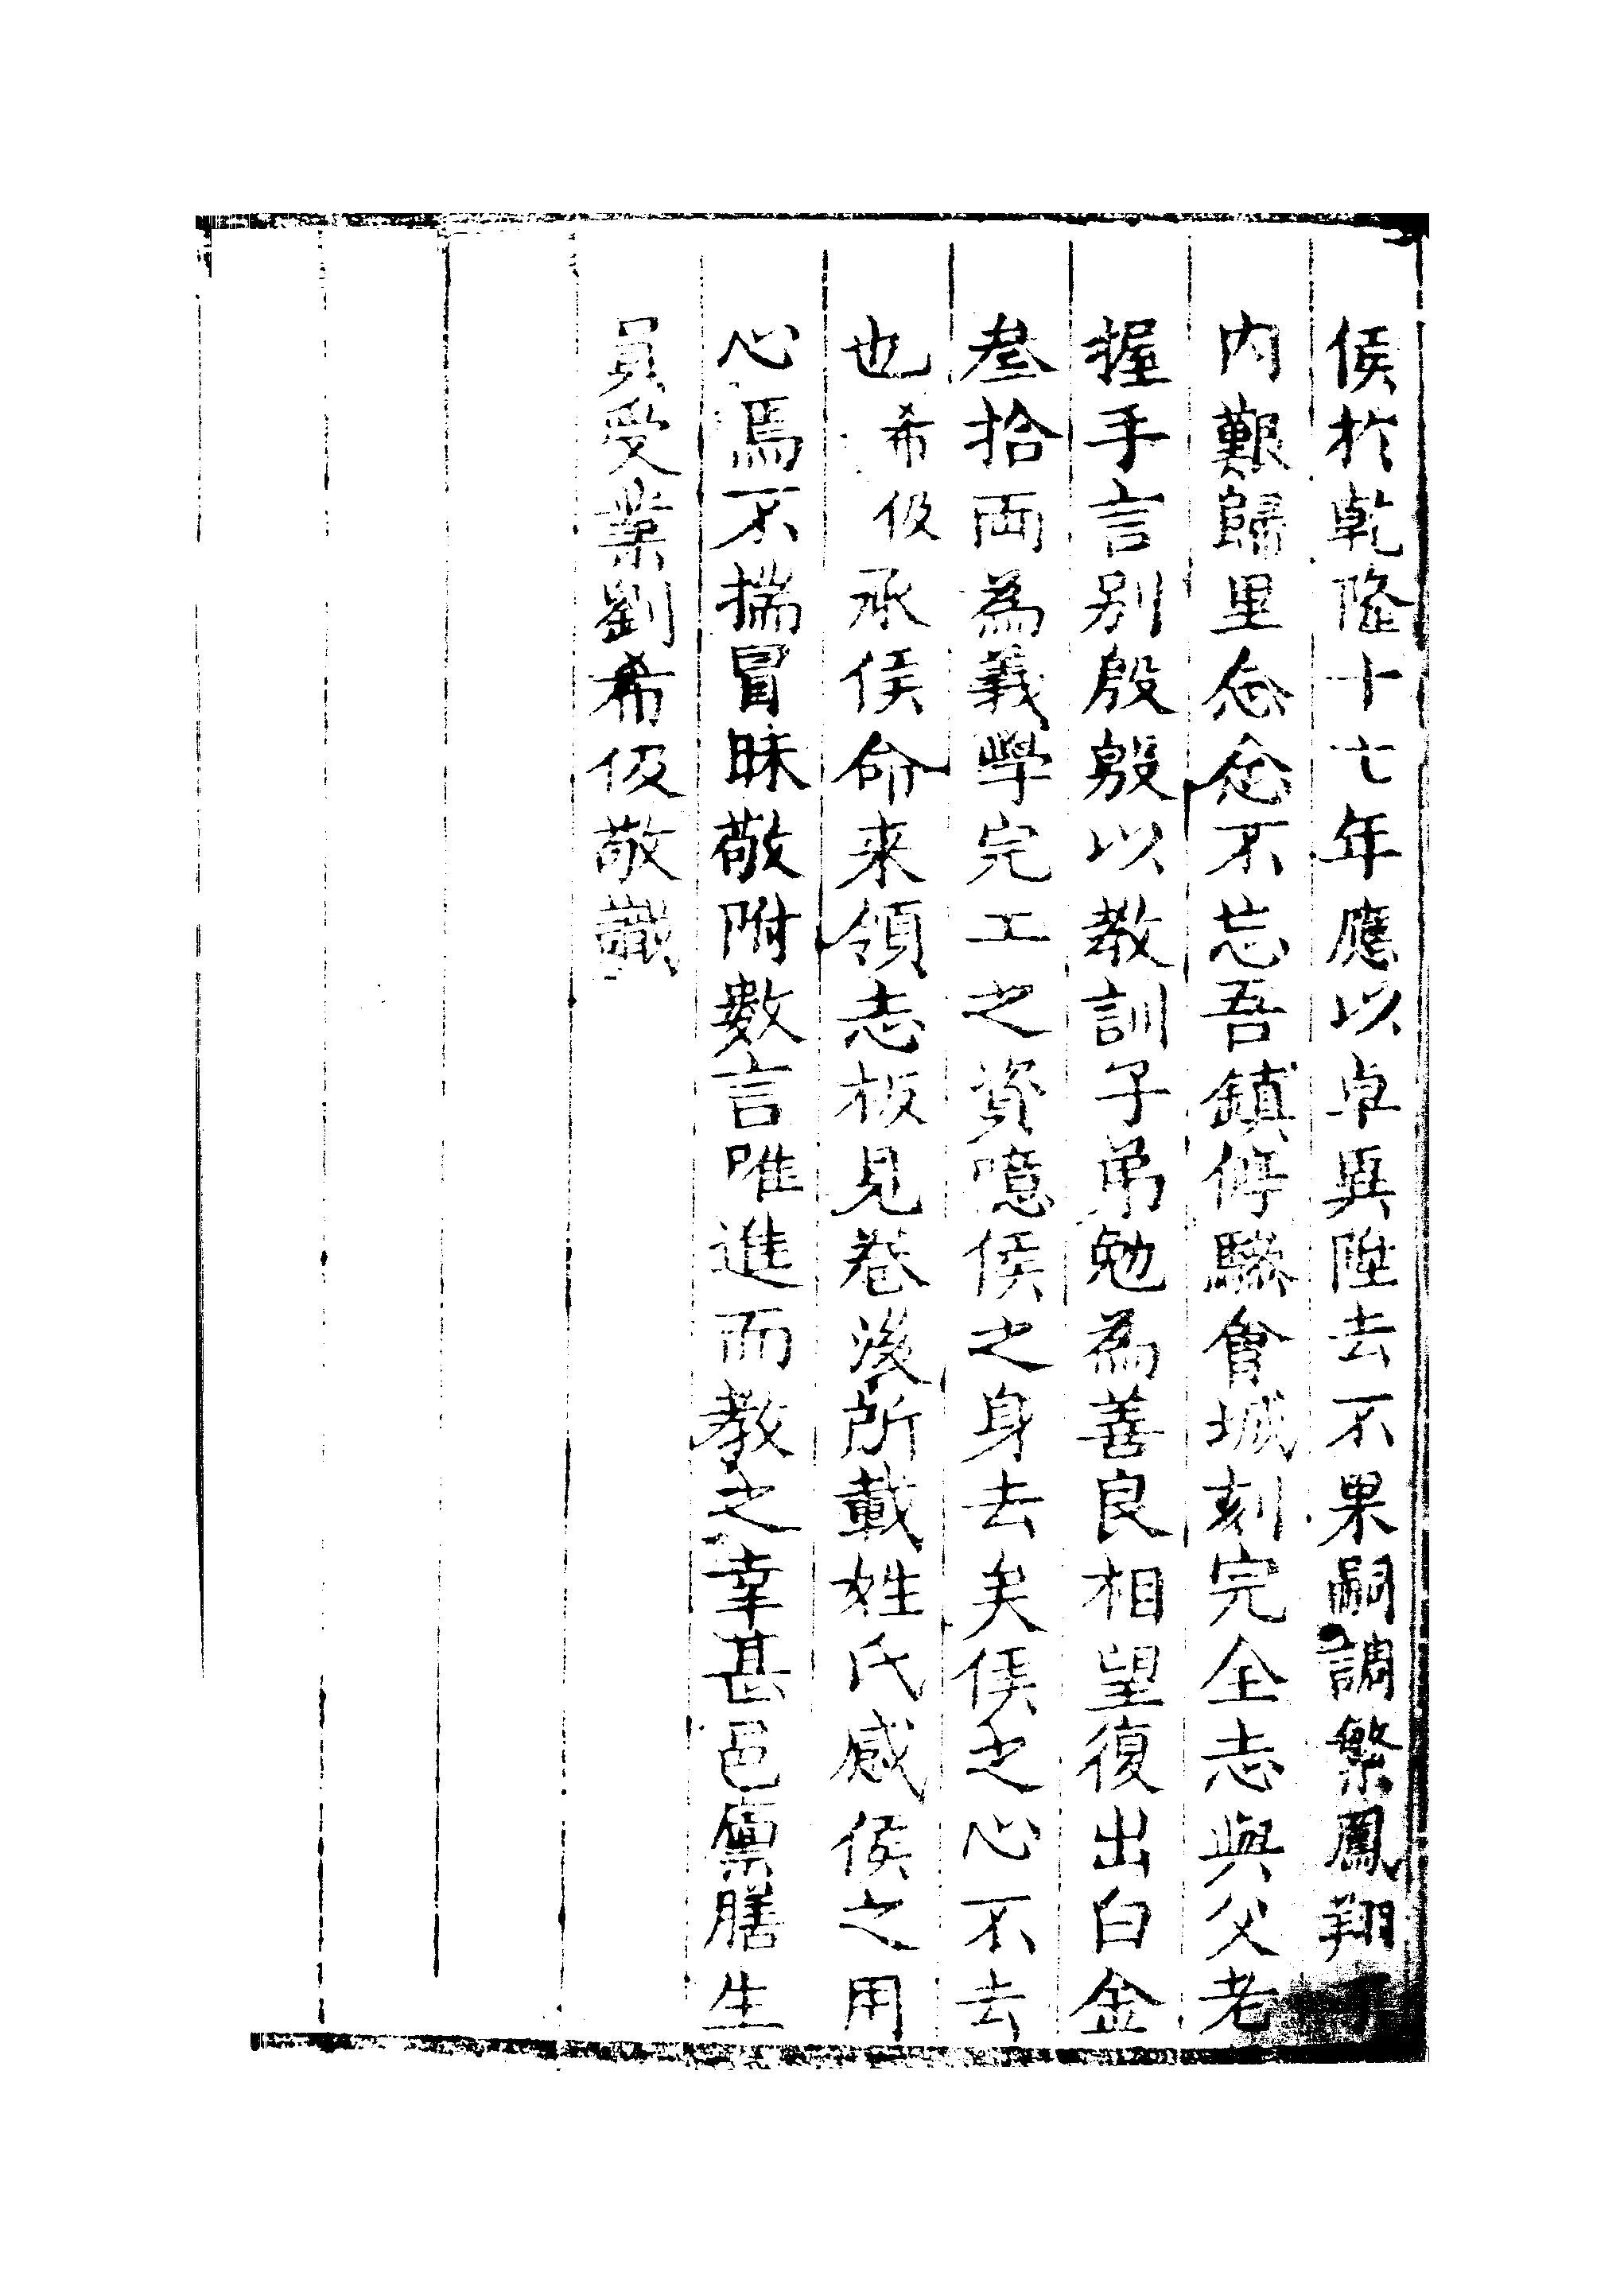 侯扵乾隆十七年應以卓異陞去不果嗣調繁鳳翔丁
内艱歸里念念不忘吾鎮停驂會城刻完全志與父老
握手言别殷殷以教訓子弟勉為善良相望復出白金
叁拾両為義學完工之資噫侯之身去矣侯之心不去
也希伋承侯命来領志板見卷後所載姓氏感侯之用
心焉不揣冒昧敬附數言唯進而教之幸甚邑廪膳生
員受業劉希伋敬識